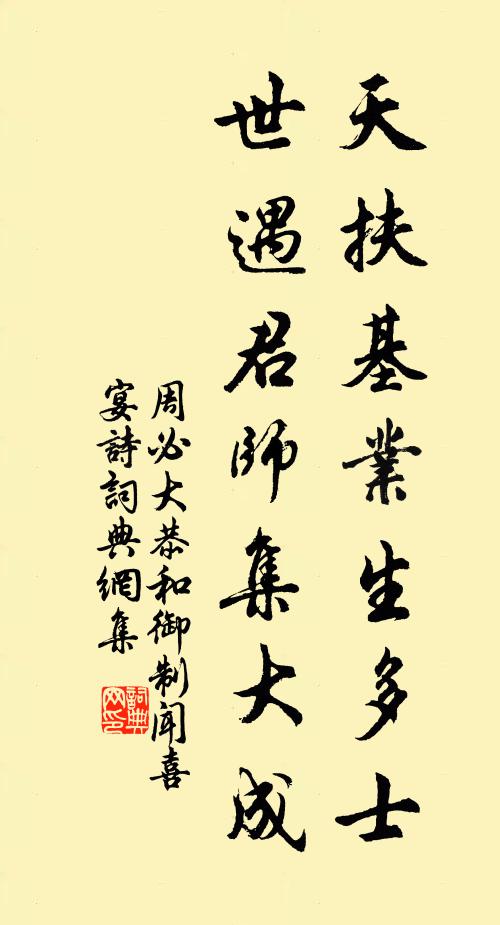 天扶基業生多士
世遇君師集大成
周必大恭和御制聞喜
宴詩詞典網集
詞典網印